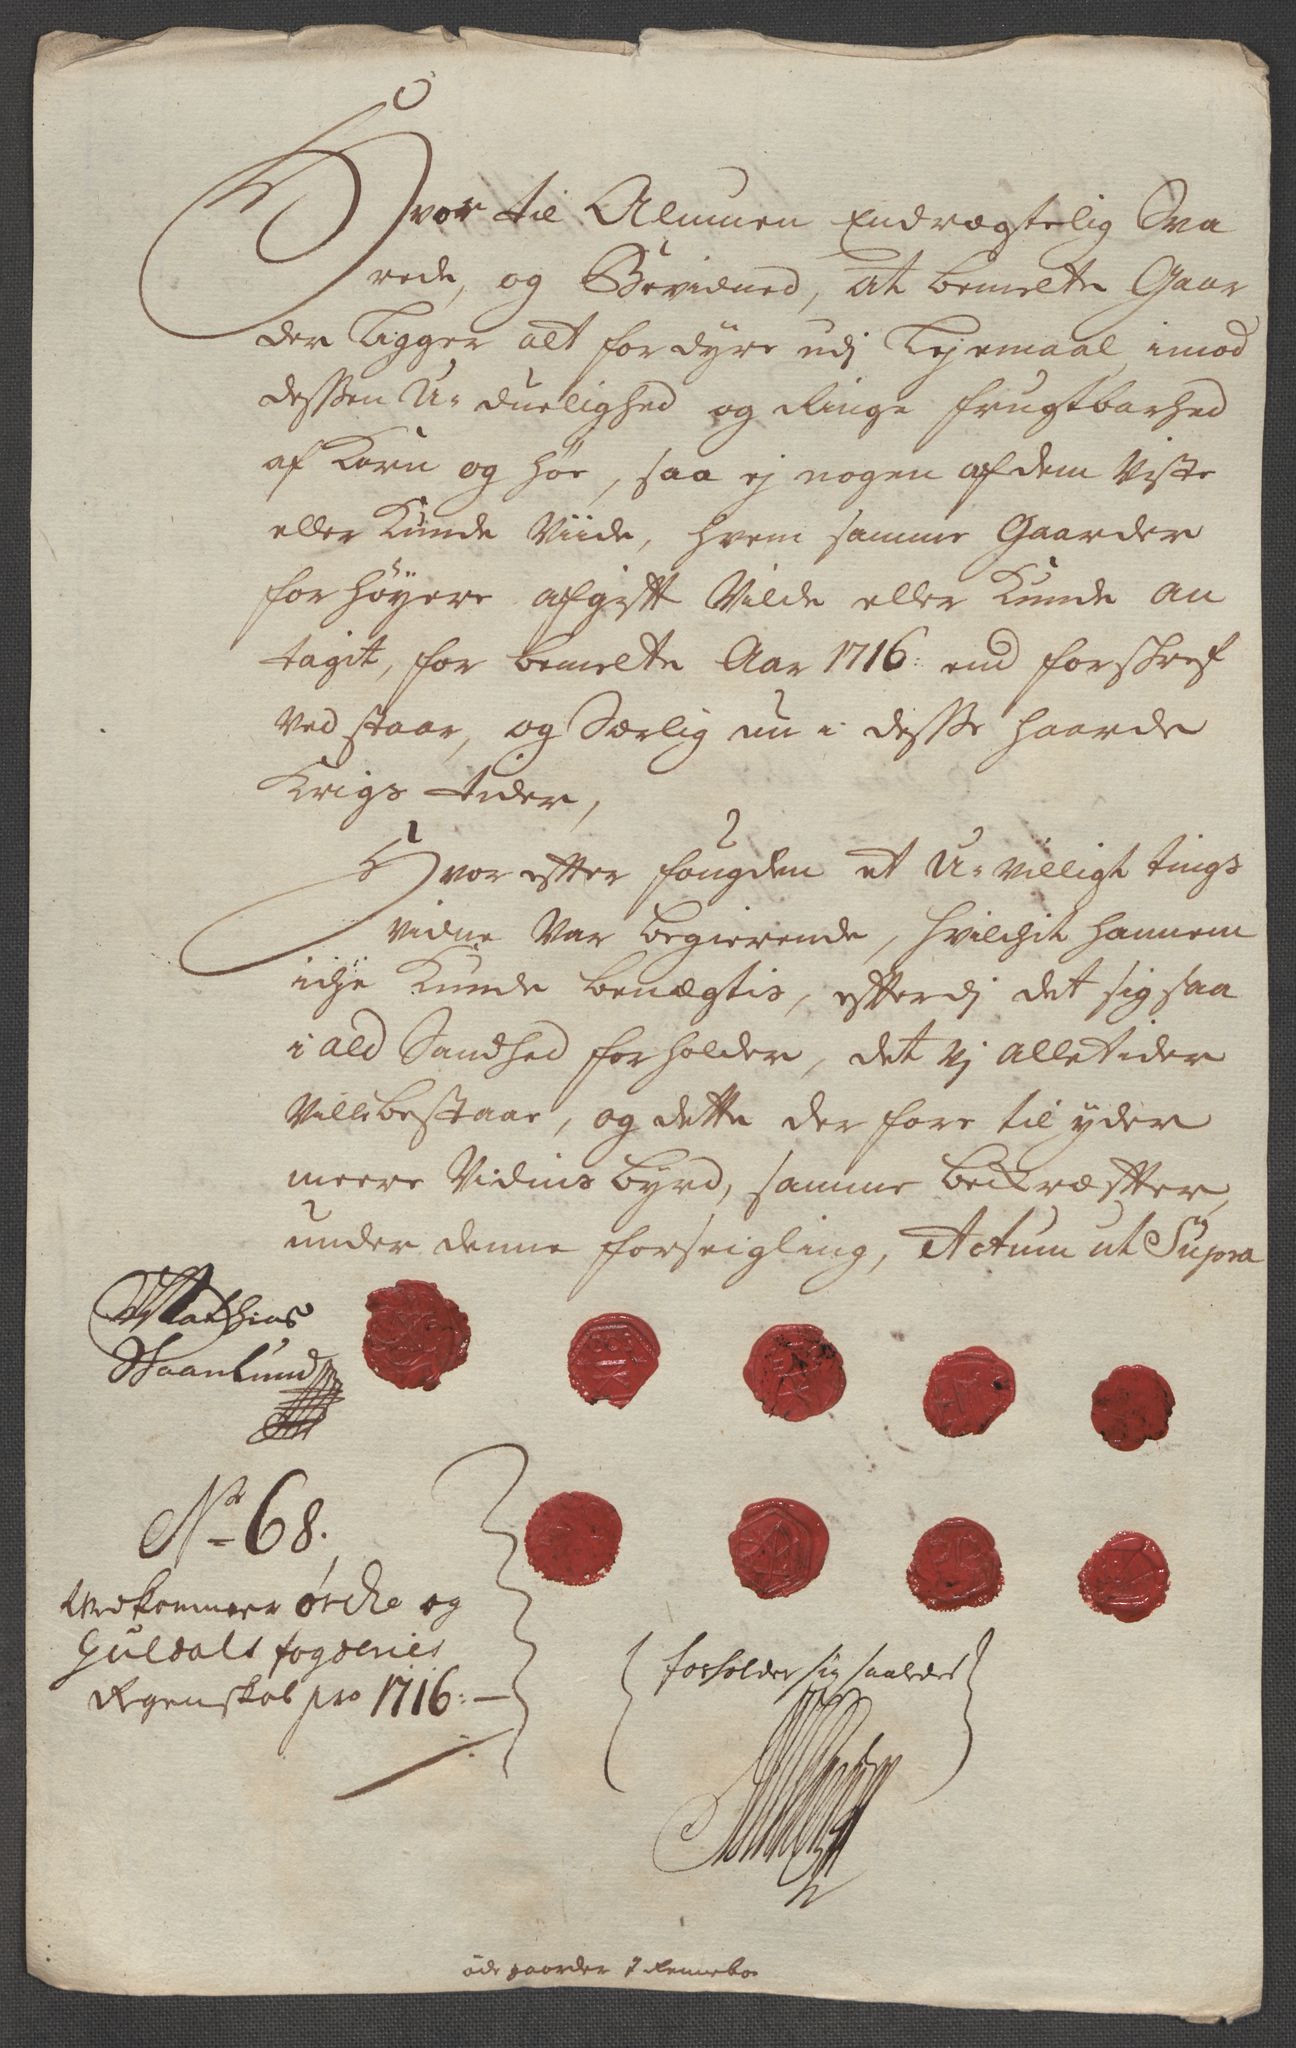 Hvor til Almuen Endrægtelig Sva
rede, og Bevidned, at bemelte Gaar
der Ligger alt for dyre udj Lejemaal imod
dessen U-duelighed og Ringe frugtbarhed
af Korn og Høe, saa ej nogen af dem Viste
eller Kunde Viide, hvem samme Gaarder
for høyere afgift Vilde eller Kunde an
tagit, for bemelte Aar 1716: end forskref
ved staar, og Særlig nu i desse haarde
Krigs tider,
Hvor efter fougden et U-villigt tings
vidne Var begierende, hvilchit hannem
iche Kunde benægtis, efterdj det sig saa
i ald Sandhed forholder, det vj alletider
Ville bestaae, og dette der fore til yder
meere Vidnis byrd, samme bekræfter,
under denne forseigling, Actum ut Supra
Mathias
No 68.
Vedkommer Ørche og
Guldals fogderies
Regenskab pro 1716:
forholder sig saaledes
øde gaarder i Rennebo